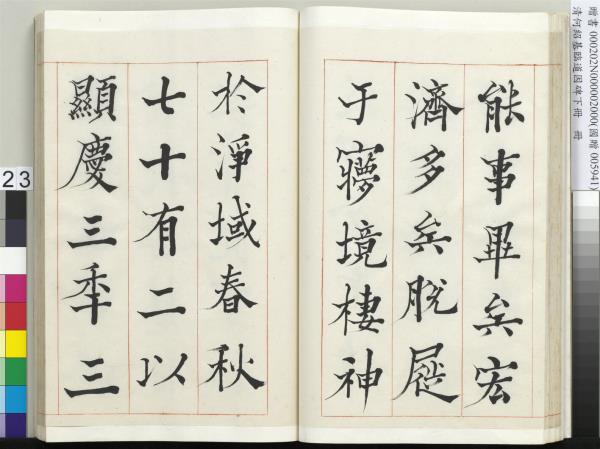 能事畢矣宏
濟多矣脫屣
于㝱境棲神
於淨域春秋
七十有二以
顯慶三季三
贈書 000202N000002000(國贈 005941)
清何紹基臨道因碑下冊 冊
23